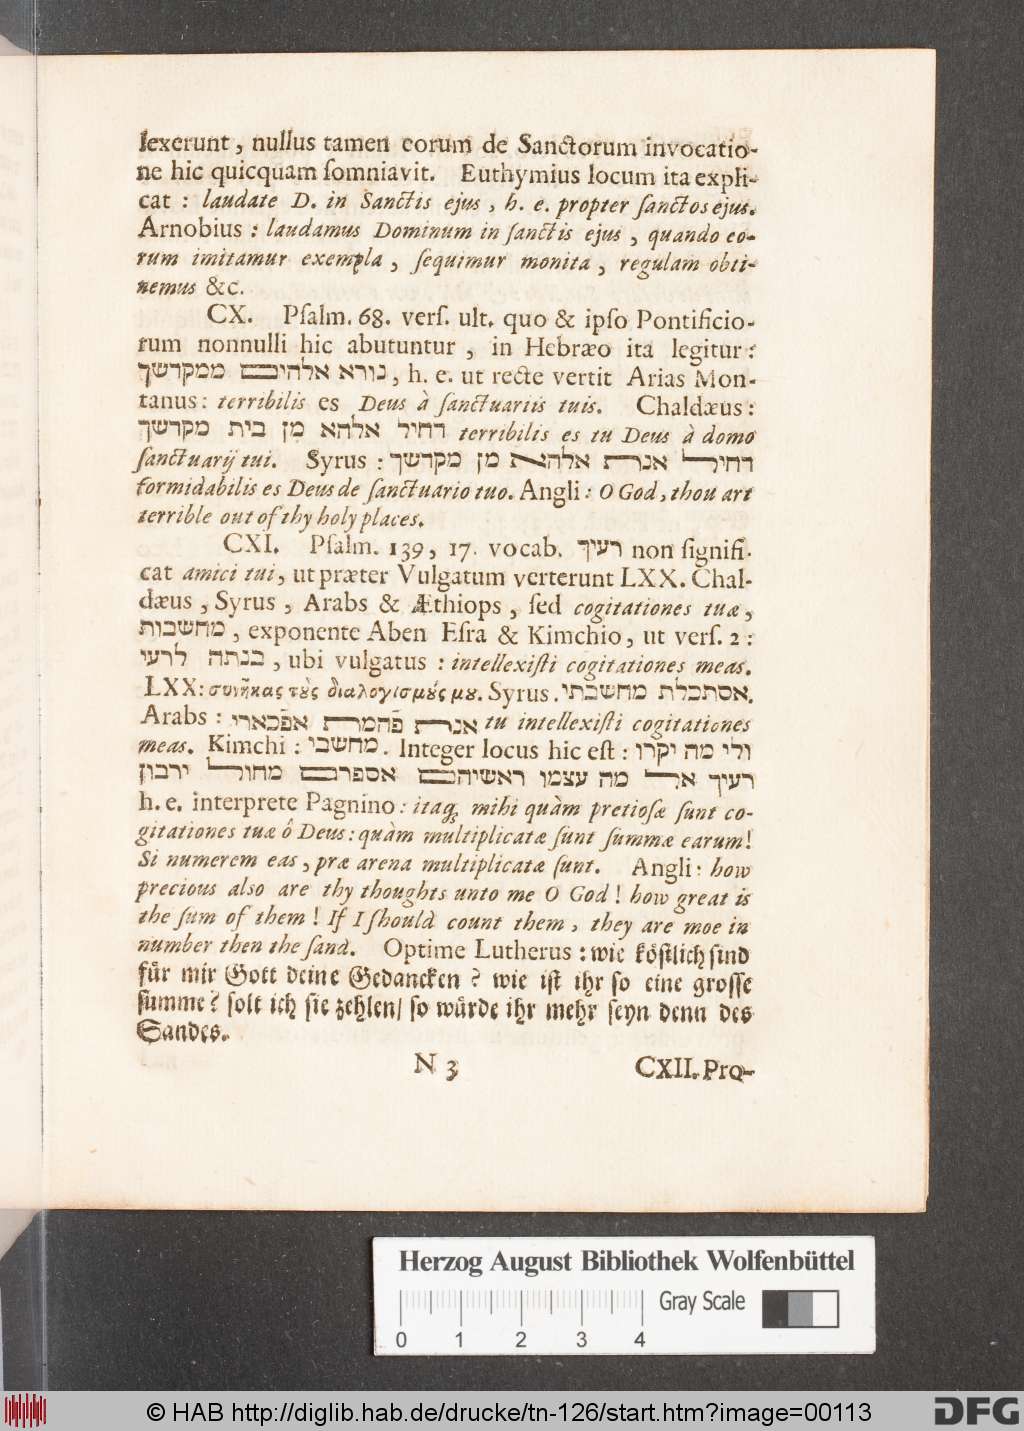 lexerunt, nullus tamen eorum de Sanctorum invocatio-
ne hic quicquam ſomniavit. Euthymius locum ita expli-
cat: laudate D. in Sanctis ejus, h. e. propter ſanctos ejus.
Arnobius: laudamus Dominum in ſanctis ejus, quando eo-
rum imitamur exempla, ſequimur monita, regulam obti-
nemus &c.
CX. Pſalm. 68. verſ. ult. quo & ipſo Pontificio-
rum nonnulli hic abutuntur, in Hebræo ita legitur:
נורא אלהים ממקדשך, h. e. ut recte vertit Arias Mon-
tanus: terribilis es Deus à ſanctuariis tuis. Chaldæus:
דחיל אלהא מן בית מקדשך terribilis es tu Deus à domo
ſanctuarij tui. Syrus: דחיל אנת אלהא מן מקדשך
formidabilis es Deus de ſanctuario tuo. Angli: O God, thou art
terrible out of thy holy places.
CXI. Pſalm. 139, 17. vocab. רעיך non ſignifi-
cat amici tui, ut præter Vulgatum verterunt LXX. Chal-
dæus, Syrus, Arabs & Æthiops, ſed cogitationes tuæ,
מחשבות, exponente Aben Eſra & Kimchio, ut verſ. 2:
בנתה לרעי, ubi vulgatus: intellexiſti cogitationes meas.
LXX: συνῆκας τȣ̀ς διαλογισμȣ́ς μȣ. Syrus. אסתכלת מחשבתי.
Arabs: אנת פהמת אפכארי tu intellexiſti cogitationes
meas. Kimchi: מחשבי. Integer locus hic eſt: ולי מה יקרו
רעיך אל מה עצמו ראשיהם אספרם מחול ירבון
h. e. interprete Pagnino: itaq; mihi quàm pretioſæ ſunt co-
gitationes tuæ ô Deus: quàm multiplicatæ ſunt ſummæ earum!
Si numerem eas, præ arena multiplicatæ ſunt. Angli: how
precious also are thy thoughts unto me O God! how great is
the ſum of them! If I ſhould count them, they are moe in
number then the ſand. Optime Lutherus: wie köſtlich ſind
für mir Gott deine Gedancken? wie iſt ihr ſo eine groſſe
ſumme? ſolt ich ſie zehlen/ ſo würde ihr mehr ſeyn denn des
Sandes.
N 3 CXII. Pro-
Herzog August Bibliothek Wolfenbüttel
Gray Scale
0 1 2 3 4
© HAB http://diglib.hab.de/drucke/tn-126/start.htm?image=00113
DFG